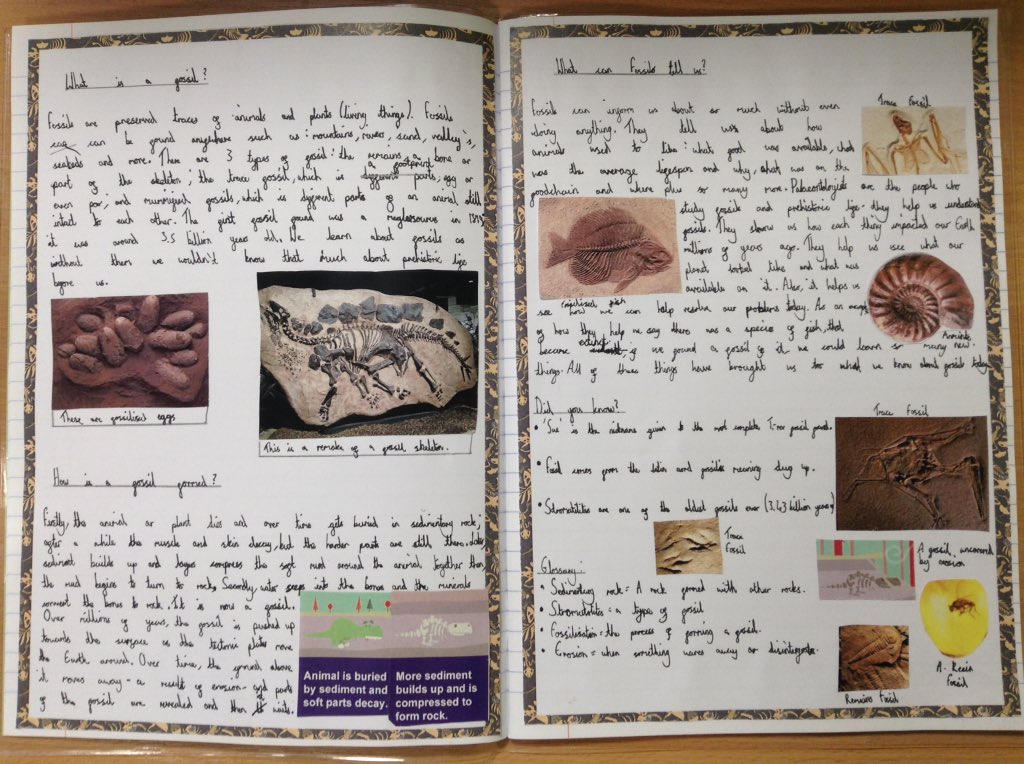 What is a fossil?
Fossils are preserved traces of animals and plants (living things). Fossils
can be found anywhere such as: mountains, rivers, sand, valley's,
seabeds and more. There are 3 types of fossil: the remains, a bone or
part of the skeleton; the trace fossil, which is a footprint, egg or
even poo; and mummified fossils, which is different parts of an animal still
intact to each other. The first fossil found was a megalosaurus in
it was around 3.5 billion years old. We learn about fossils as
without them we wouldn't know that much about prehistoric life
before us.
These are fossilised eggs
This is a remake of a fossil skeleton.
How is a fossil formed?
Firstly, the animal or plant dies and over time gets buried in sedimentary rock;
after a while the muscle and skin decay, but the harder parts are still there.
sediment builds up and layers compress the soft mud around the animal together then
the mud begins to turn to rock. Secondly, water seeps into the bones and the minerals
convert the bones to rock. It is now a fossil.
Over millions of years, the fossil is pushed up
towards the surface as the tectonic plates move
the Earth around. Over time, the ground above
it moves away - a result of erosion - and parts
of the fossil are revealed and then it waits.
Animal is buried
by sediment and
soft parts decay.
More sediment
builds up and is
compressed to
form rock.
What can fossils tell us?
Trace Fossil
Fossils can inform us about so much without even
doing anything. They tell us about how
animals used to like: what food was available, what
was the average lifespan and why, what was on the
foodchain and where plus so many more. Palaeontologists are the people who
study fossils and prehistoric life - they help us understand
fossils. They show us how each thing impacted our Earth
millions of years ago. They help us see what our
planet looked like and what was
available on it. Also, it helps us
Fossilised fish
see how we can help resolve our problems today. As an example
of how they help me say there was a species of fish, that
became extinct if we found a fossil of it we could learn so many new
things. All of these things have brought us to what we know about fossils today.
Did you know?
• 'Sue' is the nickname given to the most complete T-rex fossil found.
• Fossil comes from the latin word fossilis meaning dug up.
• Stromatilites are one of the oldest fossils ever (3.43 billion years)
Trace Fossil
Trace
Fossil
A fossil, uncovered
by erosion
Glossary:
• Sedimentary rock = A rock formed with other rocks.
• Stromatolites = a types of fossil
• Fossilisation = the process of forming a fossil.
• Erosion = when something wares away or disintegrates.
A. Resin
Fossil
Remains Fossil